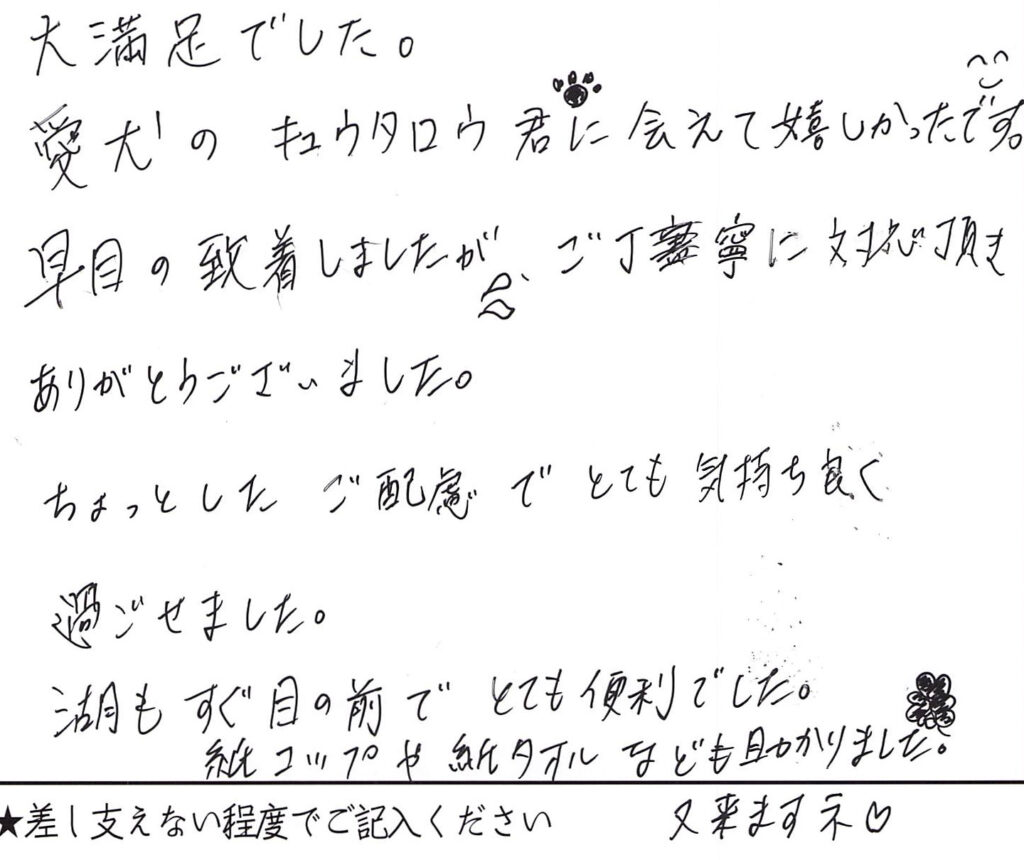 大満足でした。
愛犬の キュウタロウ君に会えて嬉しかったです。
早目の到着しましたが、ご丁寧に対応頂き
ありがとうございました。
ちょっとした ご配慮で とても 気持ち良く
過ごせました。
湖も すぐ目の前で とても便利でした。
紙コップや 紙タオル なども助かりました。
★差し支えない程度でご記入ください
又来ますネ♡